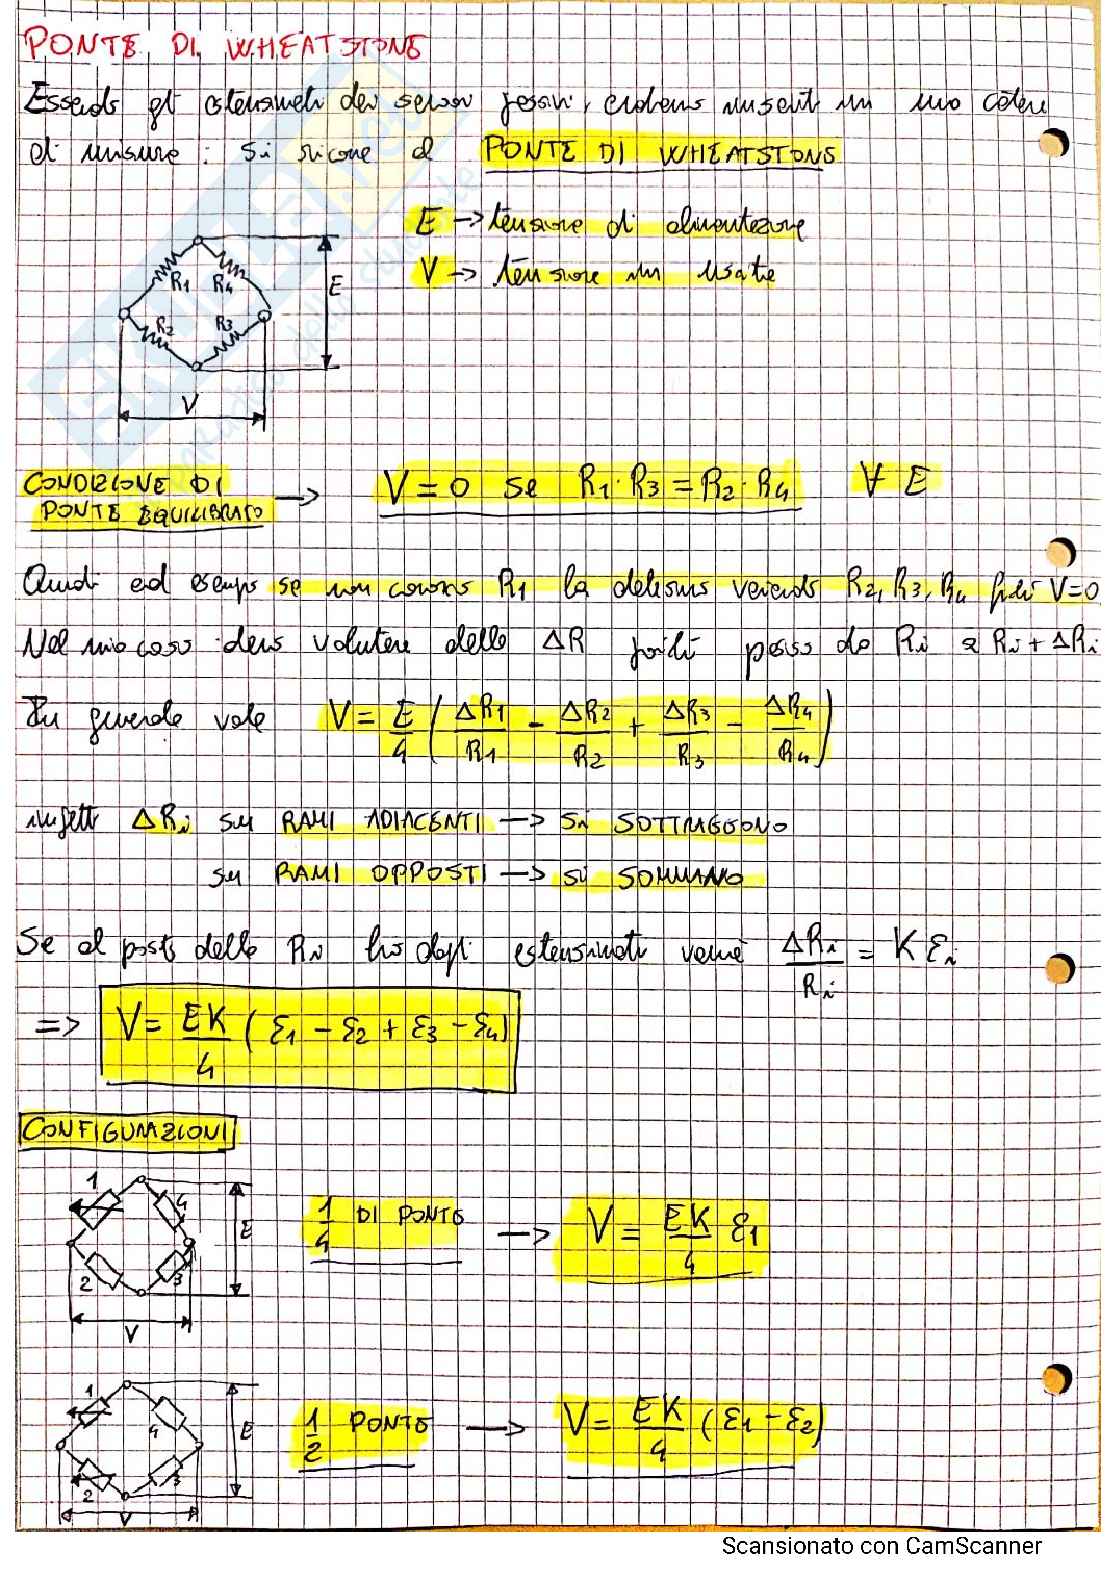 PONTE DI WHEATSTONE
Essendo gli estensimetri dei sensori passivi, andranno inseriti in una catena
di misura: si ricorre al PONTE DI WHEATSTONE
E → tensione di alimentazione
V → tensione in uscita
R1 R4 E
R2 R3
V
CONDIZIONE DI
PONTE EQUILIBRATO → V = 0 se R1 · R3 = R2 · R4 ∀ E
Quindi ad esempio se non conosco R1 la determino R2, R3, R4 finché V=0
Nel mio caso devo valutare delle ΔR poiché passo da Ri a Ri + ΔRi
In generale vale V = E/4 ( ΔR1/R1 - ΔR2/R2 + ΔR3/R3 - ΔR4/R4 )
infatti ΔRi su RAMI ADIACENTI → si SOTTRAGGONO
su RAMI OPPOSTI → si SOMMANO
Se al posto delle Ri ho degli estensimetri ΔRi/Ri = K εi
=> V = EK/4 ( ε1 - ε2 + ε3 - ε4 )
CONFIGURAZIONI
1 4 E
2 3
V
1/4 DI PONTE → V = EK/4 ε1
1 4 E
2 3
V
1/2 PONTE → V = EK/4 ( ε1 - ε2 )
Scansionato con CamScanner